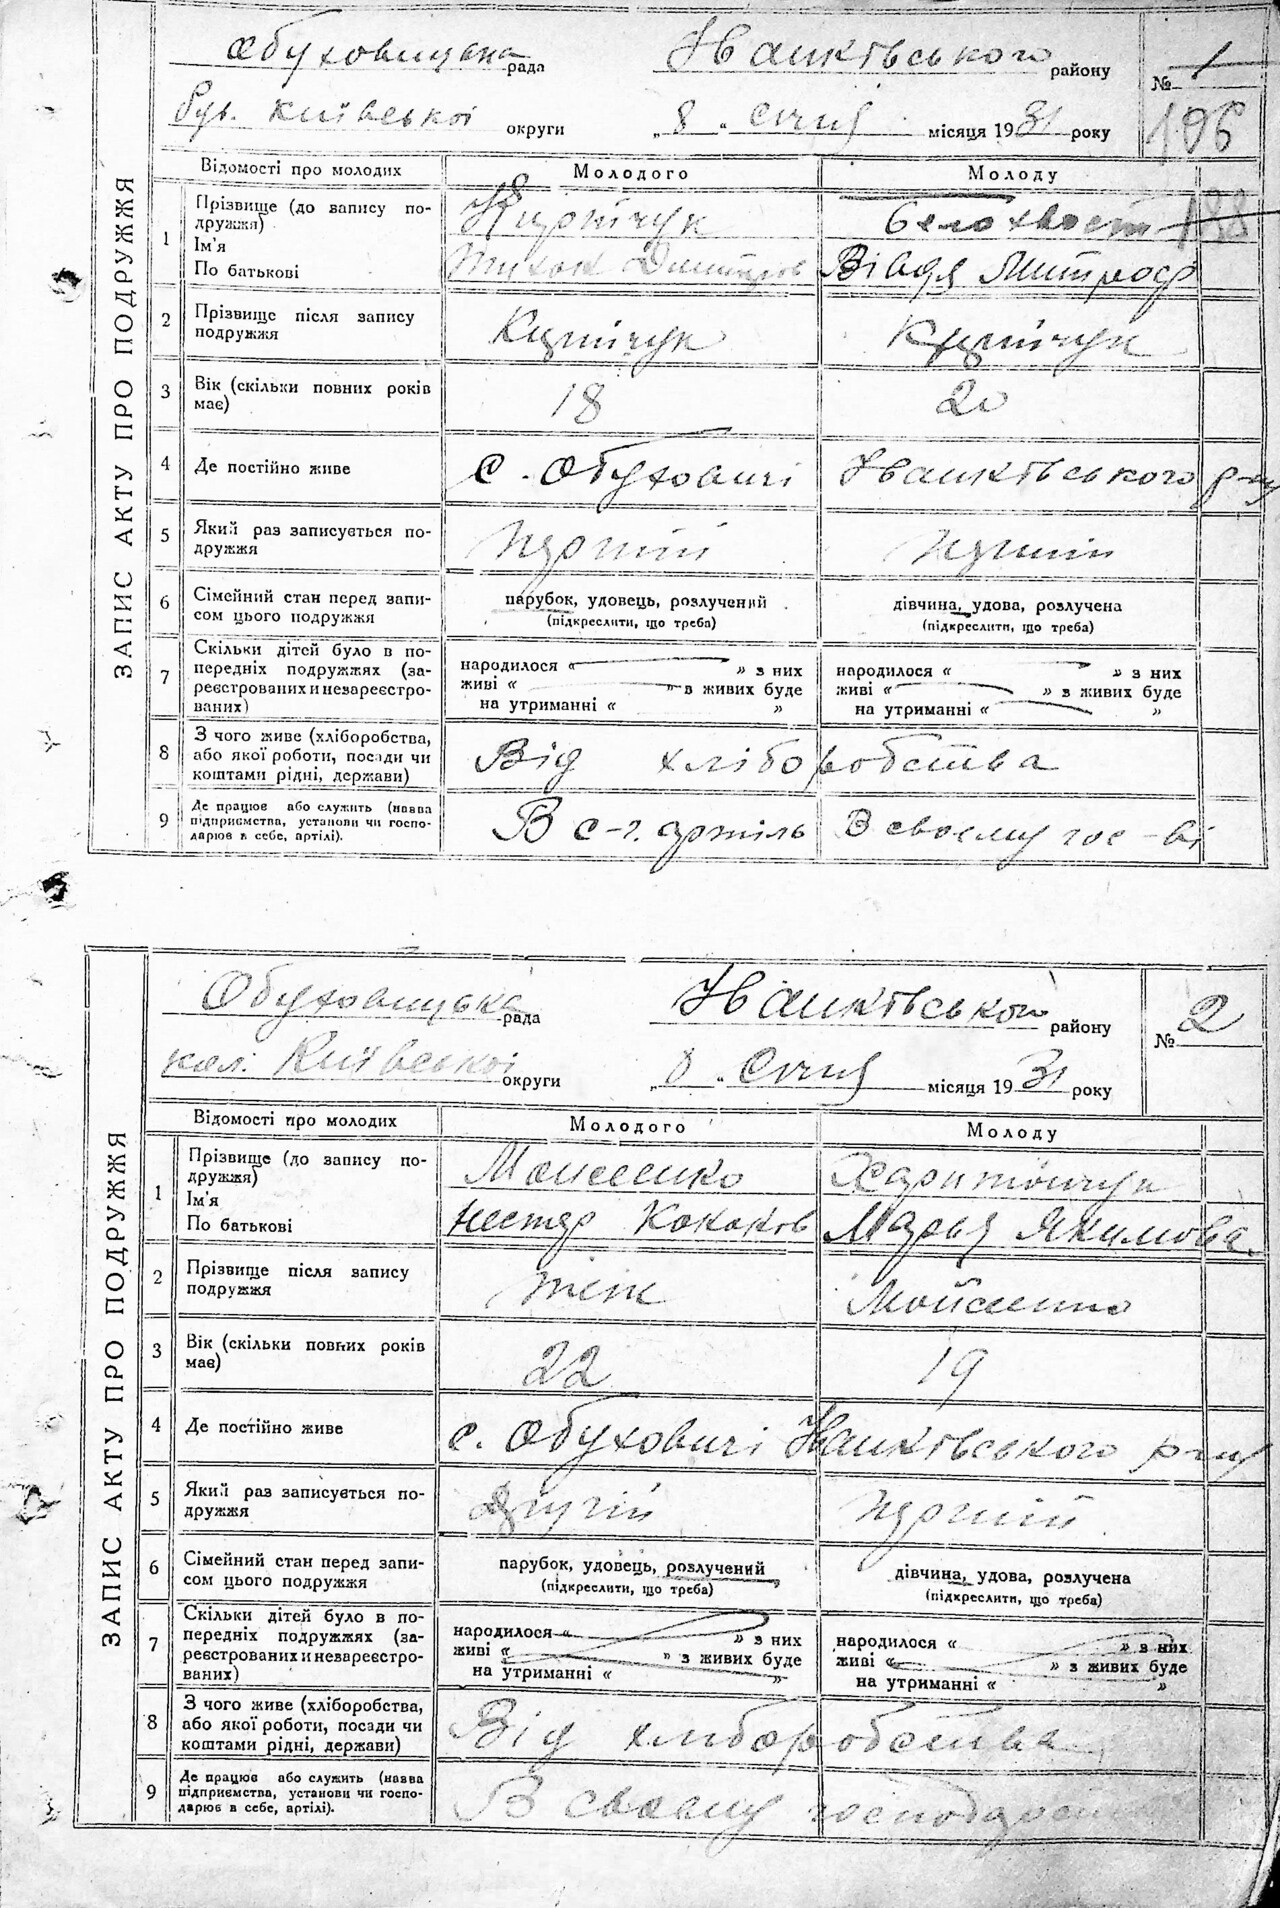 ЗАПИС АКТУ ПРО ПОДРУЖЖЯ
Обуховицька рада Іванківського району № 1
Київської округи „ 8 „ січня місяця 1931 року 196
Відомості про молодих Молодого Молоду
188
1 Прізвище (до запису подружжя) Кирпічук Белохвост
Ім'я
По батькові Тихон Дмитров Митроф
2 Прізвище після запису подружжя Кирпічук Кирпічук
3 Вік (скільки повних років має) 18 20
4 Де постійно живе с. Обуховичі Іванківського р-ну
5 Який раз записується подружжя Перший Перший
6 Сімейний стан перед записом цього подружжя парубок, удовець, розлучений (підкреслити, що треба) дівчина, удова, розлучена (підкреслити, що треба)
7 Скільки дітей було в попередніх подружжях (зареєстрованих и незареєстрованих) народилося « » з них живі « » в живих буде на утриманні « » народилося « » з них живі « » з живих буде на утриманні « »
8 З чого живе (хліборобства, або якої роботи, посади чи коштами рідні, держави) Від хліборобства
9 Де працює або служить (назва підприємства, установи чи господарює в себе, артілі). В с-г. артіль В своєму гос-ві
ЗАПИС АКТУ ПРО ПОДРУЖЖЯ
Обуховицька рада Іванківського району № 2
Київської округи „ 8 „ Січня місяця 1931 року
Відомості про молодих Молодого Молоду
1 Прізвище (до запису подружжя) Моисеенко Харитончук
Ім'я
По батькові Нестер Кононов Марья Якимова
2 Прізвище після запису подружжя теж Мойсеенко
3 Вік (скільки повних років має) 22 19
4 Де постійно живе с. Обуховичі Іванківського р-ну
5 Який раз записується подружжя Другій Перший
6 Сімейний стан перед записом цього подружжя парубок, удовець, розлучений (підкреслити, що треба) дівчина, удова, розлучена (підкреслити, що треба)
7 Скільки дітей було в попередніх подружжях (зареєстрованих и незареєстрованих) народилося « » з них живі « » з живих буде на утриманні « » народилося « » в них живі « » з живих буде на утриманні « »
8 З чого живе (хліборобства, або якої роботи, посади чи коштами рідні, держави) Від хліборобства
9 Де працює або служить (назва підприємства, установи чи господарює в себе, артілі). В своєму